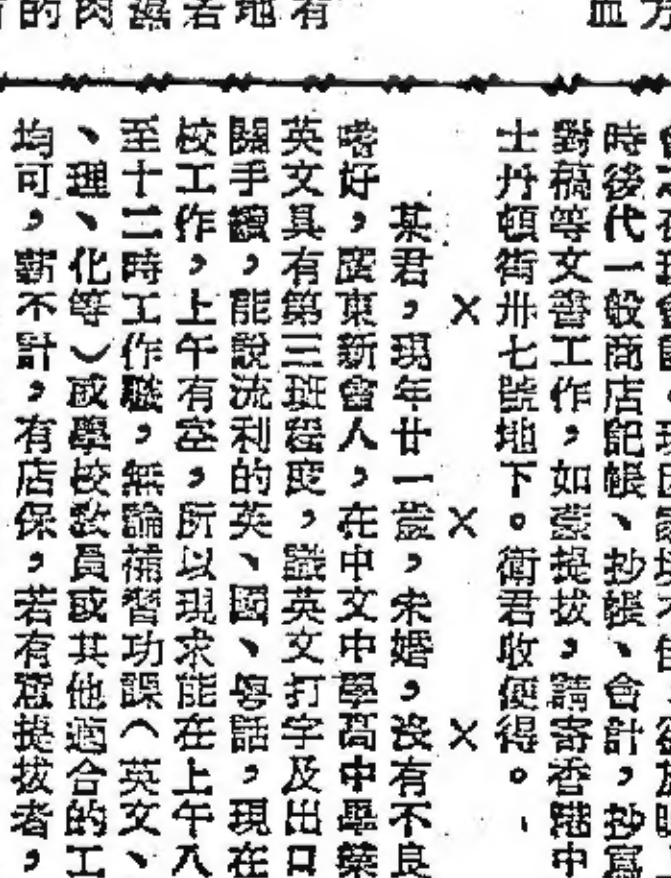 有地若
的肉
方
血
時後代一般商店記帳、抄帳、會計，抄寫
對稿等文書工作，如蒙提拔，請寄香港中
士丹頓街卅七號地下。衛君收便得。
×××
某君，現年廿一歲，未婚，沒有不良
嗜好，廣東新會人，在中文中學高中畢業
英文具有第三班程度，識英文打字及出口
關手續，能說流利的英、國、粵話，現在
校工作，上午有空，所以現求能在上午八
至十二時工作職，無論補習功課（英文、
、理、化等）或學校教員或其他適合的工
均可，薪不計，有店保，若有意提拔者，